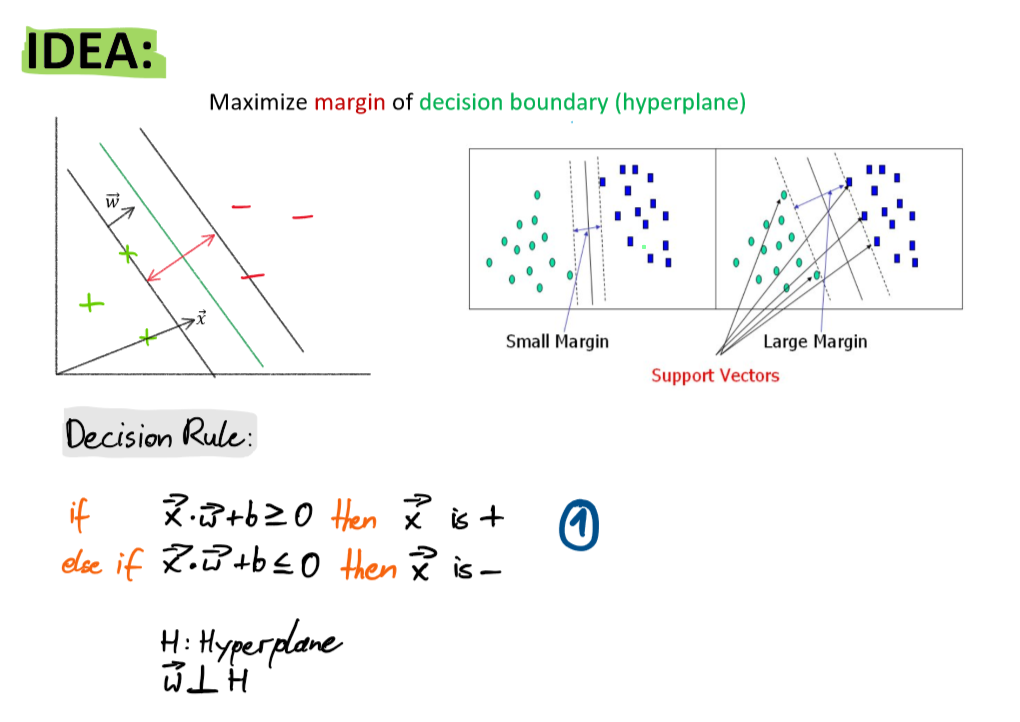 IDEA:
Maximize margin of decision boundary (hyperplane)
w⃗
x⃗
Small Margin
Large Margin
Support Vectors
Decision Rule:
if x⃗·w⃗+b≥0 then x⃗ is +
1
else if x⃗·w⃗+b≤0 then x⃗ is −
H: Hyperplane
w⃗⊥H